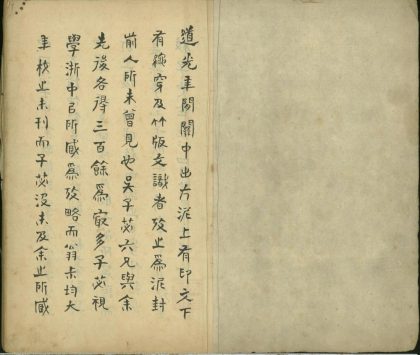 道光年間關中出片泥上有印文下
有繩穿及竹版文識者攷止爲泥封
前人所未曾見也吳子苾六兄與余
先後各得三百餘爲最多子苾視
學浙中㠯所臧爲攷略而翁未均大
年校止未刊而子苾沒未及余止所臧